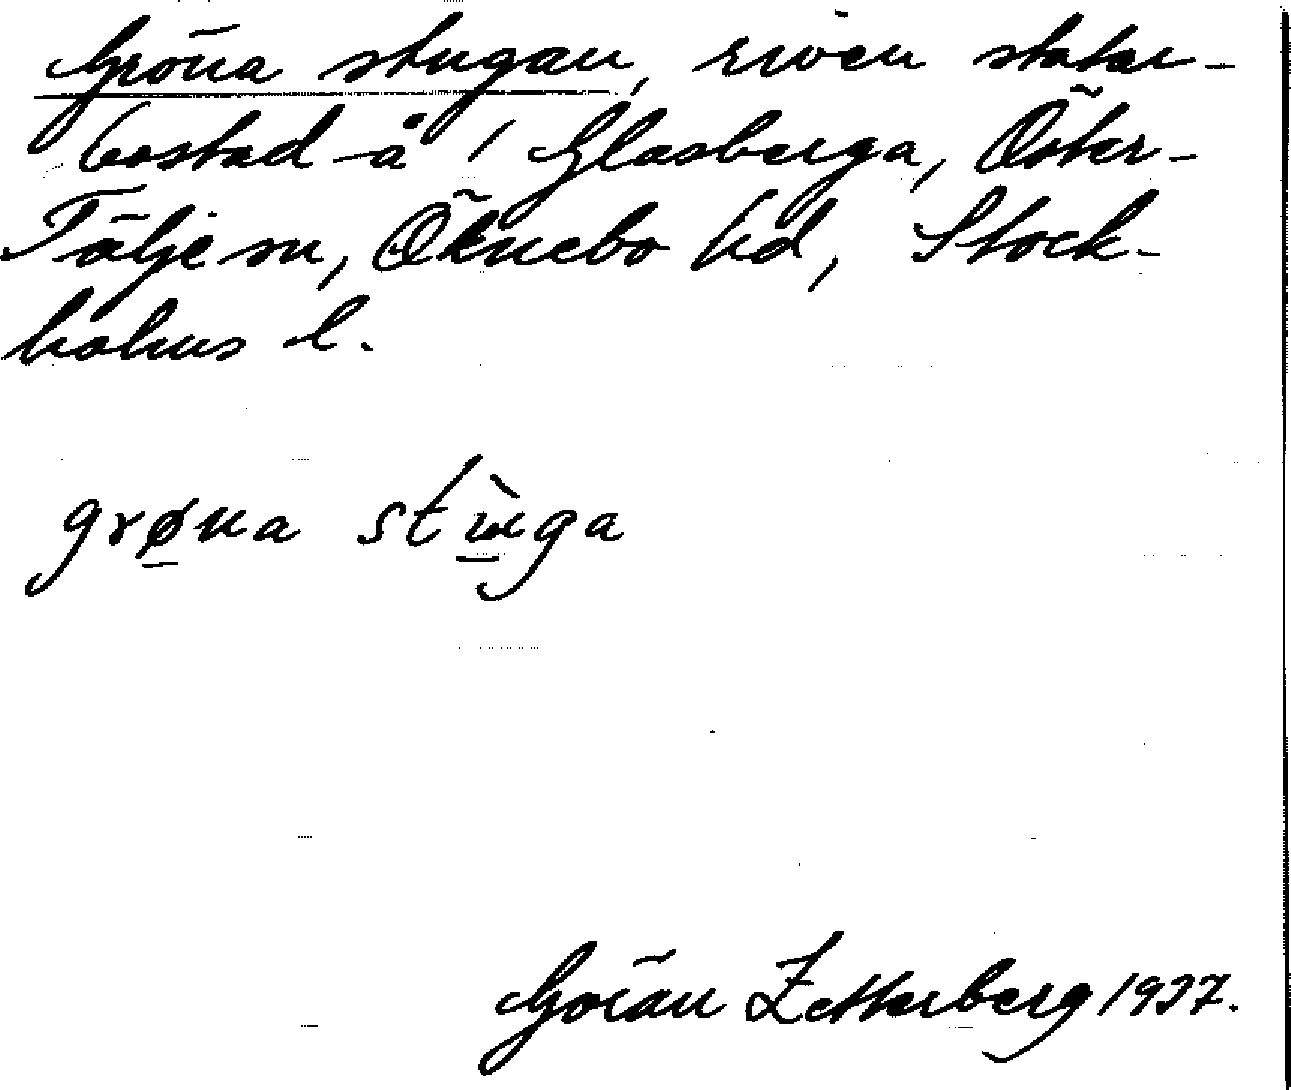 Gröna stugan, riven statar-
bostad å 1 Glasberga, Öster-
Tälje sn, Öknebo hd, Stock-
holms l.
grøna stùga
Göran Zetterberg 1937.